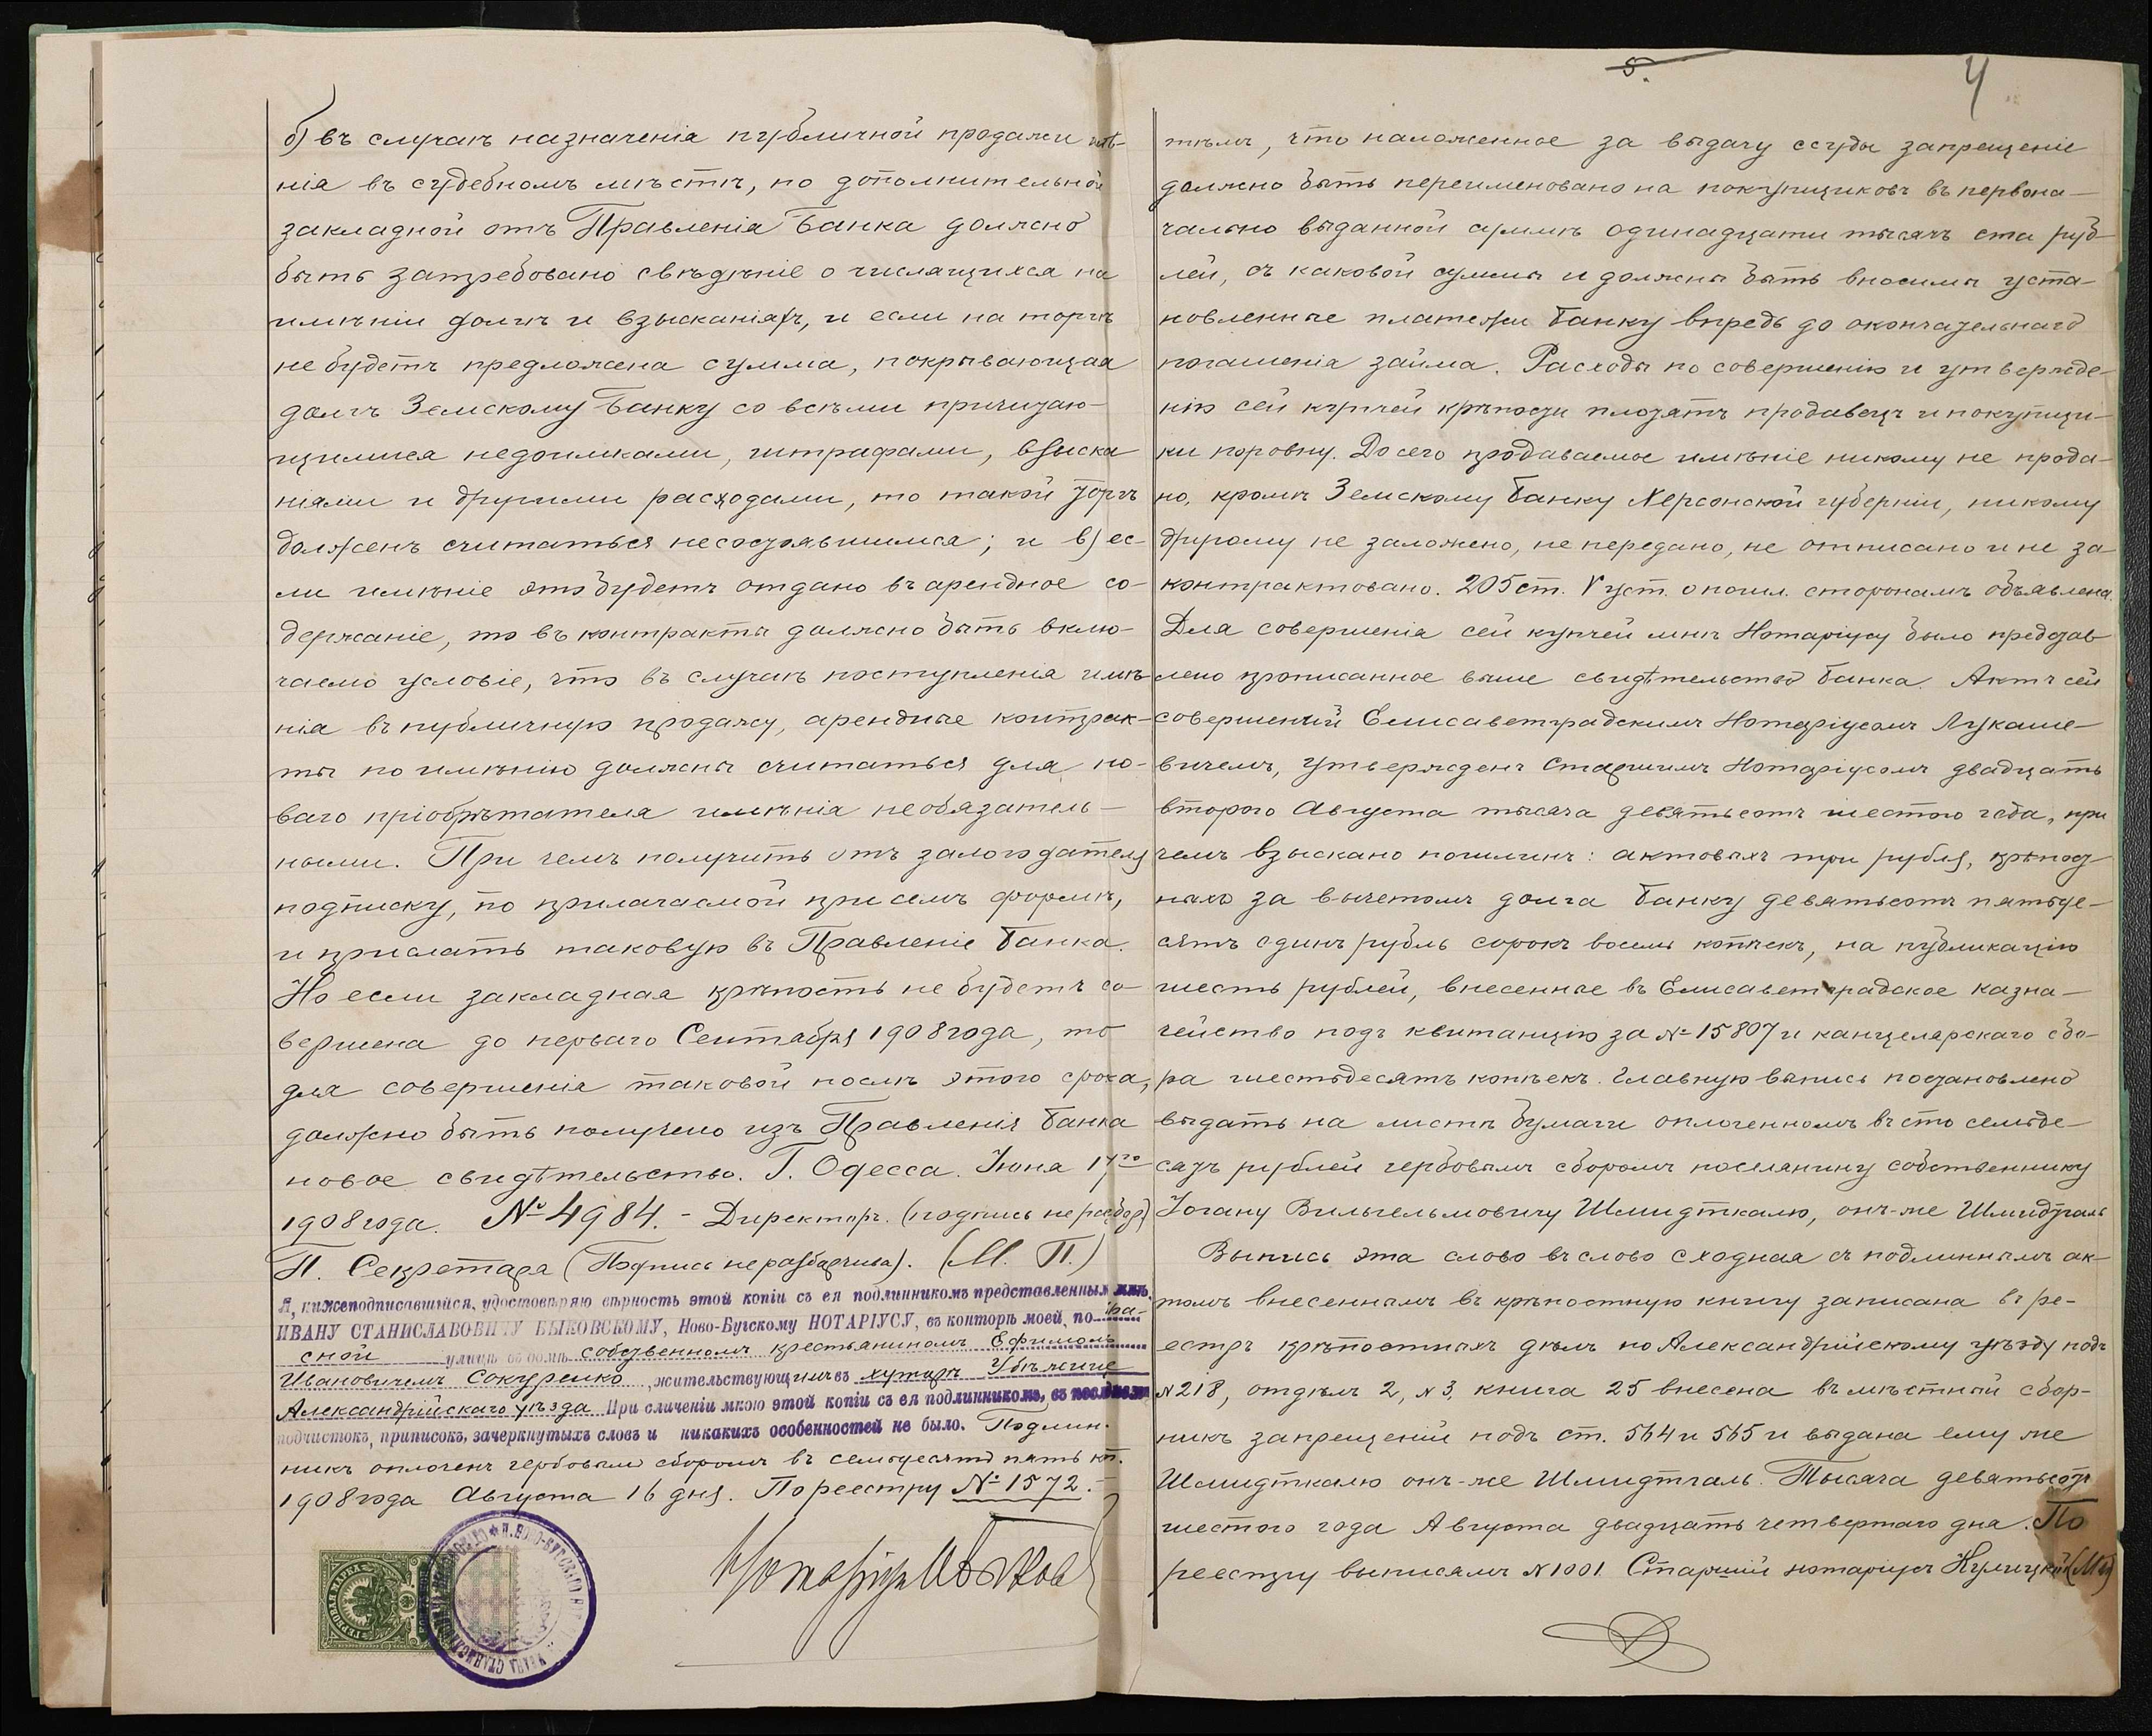 б) въ случаѣ назначенія публичной продажи имѣ-
нія въ судебномъ мѣстѣ, по дополнительной
закладной отъ Правленія Банка должно
быть затребовано свѣдѣніе о числящихся на
имѣніи долгѣ и взысканіяхъ, и если на торгѣ
не будетъ предложена сумма, покрывающая
долгъ Земскому Банку со всѣми причитаю-
щимися недоимками, штрафами, взыска
ніями и другими расходами, то такой торгъ
долженъ считаться несостоявшимся; и в) ес-
ли имѣніе это будетъ отдано въ арендное со-
держаніе, то въ контракты должно быть вклю-
чаемо условіе, что въ случаѣ поступленія имѣ
нія въ публичную продажу, арендные контрак-
ты по имѣнію должны считаться для но-
ваго пріобрѣтателя имѣнія необязатель-
ными. При чемъ получить отъ залогодателя
подписку, по прилагаемой при семъ формѣ,
и прислать таковую въ Правленіе Банка.
Но если закладная крѣпость не будетъ со-
вершена до перваго Сентября 1908 года, то
для совершенія таковой послѣ этого срока,
должно быть получено изъ Правленія Банка
новое свидѣтельство. Г. Одесса. Іюня 17го
1908 года. № 4984. - Директоръ. (подпись не разбор)
П. Секретаря (Подпись неразборчива). (М. П.)
Я, нижеподписавшійся, удостовѣряю вѣрность этой копіи съ ея подлинникомъ представленнымъ мнѣ,
ИВАНУ СТАНИСЛАВОВИЧУ БЫКОВСКОМУ, Ново-Бугскому НОТАРІУСУ, въ конторѣ моей, по Кра-
сной улицѣ въ домѣ собственномъ крестьяниномъ Ефимомъ
Ивановичемъ Сокуренко, жительствующимъ въ хуторѣ Убѣжище
Александрійскаго уѣзда При сличеніи мною этой копіи съ ея подлинникомъ, въ послѣднемъ
подчистокъ, приписокъ, зачеркнутыхъ словъ и никакихъ особенностей не было. Подлин-
никъ оплоченъ гербовымъ сборомъ въ семьдесятъ пять коп.
1908 года Августа 16 дня. По реестру № 1572.-
Нотаріусъ И Быков
ГЕРБОВАЯ МАРКА
5.
4
тѣмъ, что наложенное за выдачу ссуды запрещеніе
должно быть переименовано на покупщиковъ въ первона-
чально выданной суммѣ одинадцати тысячъ ста руб-
лей, съ каковой суммы и должны быть вносимы уста-
новленные платежи Банку впредь до окончательнаго
погашенія займа. Расходы по совершенію и утвержде-
нію сей купчей крѣпости плотятъ продавецъ и покупщи-
ки поровну. До сего продаваемое имѣніе никому не прода-
но, кромѣ Земскому Банку Херсонской губерніи, никому
другому не заложено, не передано, не отписано и не за-
контрактовано. 205 ст. V уст. о пошл. сторонамъ объявлена.
Для совершенія сей купчей мнѣ Нотаріусу было представ
лено прописанное выше свидѣтельство Банка. Актъ сей
совершенный Елисаветградскимъ Нотаріусомъ Лукаше-
вичемъ, утвержденъ Старшимъ Нотаріусомъ двадцать
второго Августа тысяча девятьсотъ шестого года, при
чемъ взыскано пошлинъ: актовыхъ три рубля, крѣпост
ныхъ за вычетомъ долга Банку девятьсотъ пятьде-
сятъ одинъ рубль сорокъ восемь копѣекъ, на публикацію
шесть рублей, внесенные въ Елисаветградское казна-
чейство подъ квитанцію за № 15807 и канцелярскаго сбо-
ра шестьдесятъ копѣекъ. Главную выпись постановлено
выдать на листѣ бумаги оплоченномъ въ сто семьде-
сятъ рублей гербовымъ сборомъ поселянину собственнику
Іогану Вильгельмовичу Шмидткалю, онъ-же Шмидтгаль
Выпись эта слово въ слово сходная съ подлиннымъ ак-
томъ внесеннымъ въ крѣпостную книгу записана въ ре-
естръ крѣпостныхъ дѣлъ по Александрійскому уѣзду подъ
№ 218, отдѣлъ 2, № 3, книга 25 внесена въ мѣстный сбор-
никъ запрещеній подъ ст. 564 и 565 и выдана ему же
Шмидткалю онъ-же Шмидтгаль. Тысяча девятьсотъ
шестого года Августа двадцать четвертаго дня. По
реестру выписямъ № 1001. Старшій нотаріусъ Кулицкій (М П)